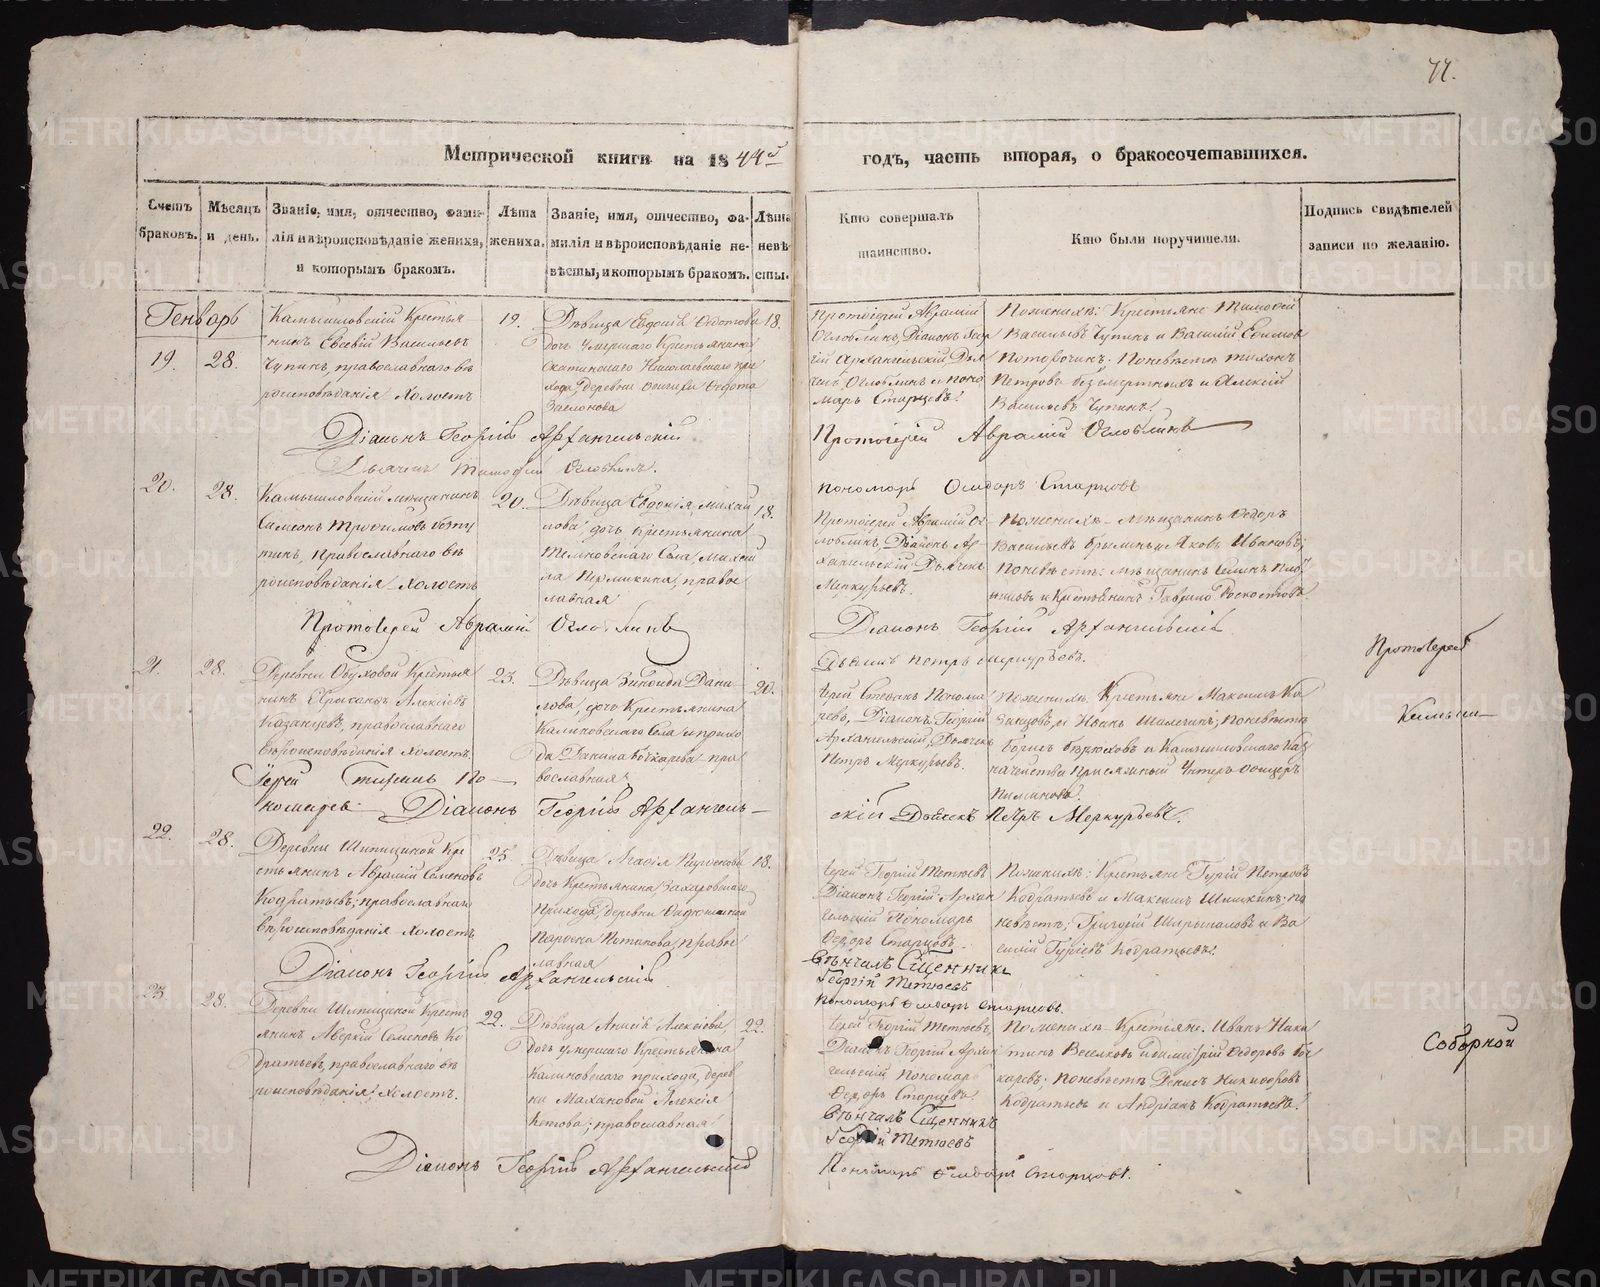 77.
Метрической книги на 1844й годъ, часть вторая, о бракосочетавшихся.
Счетъ браковъ.
Мѣсяцъ и день.
Званіе, имя, отчество, фами-
лія и вѣроисповѣданіе жениха,
и которымъ бракомъ.
Лѣта
жениха.
Званіе, имя, отчество, фа-
милія и вѣроисповѣданіе не-
вѣсты, и которымъ бракомъ.
Лѣта
невѣ-
сты.
Кто совершалъ
таинство.
Кто были поручители.
Подпись свидѣтелей
записи по желанію.
Генварь
19.
28.
Камышловскій Крестья
нинъ Евсевій Васильевъ
Чупинъ, православнаго вѣ
роисповѣданія Холостъ
19.
Дѣвица Евдокія Федотова
дочь умершаго Крестьянина
Скатинскаго Николаевскаго при
хода, деревни Федота
18.
Протоіерей Аврамій
Оглоблинъ, Діаконъ Геор
гій Архангельскій, Дья
чекъ Оглоблинъ и поно
марь Старцовъ.
Поженихѣ: Крестьяне Тимофей
Васильевъ Чупинъ и Василій Ефимов
Поневѣстѣ Тихонъ
Петровъ безсмертныхъ и Алексій
Васильевъ Чупинъ.
Діаконъ Георгій Архангельскій
Дьячекъ Тимофей Оглоблинъ.
Протоіерей Аврамій Оглоблинъ
пономарь Ѳеодоръ Старцовъ
20.
28.
Камышловскій мѣщанинъ
Симеонъ Трофимовъ
православнаго вѣ
роисповѣданія Холостъ
20.
Дѣвица Евдокія Михай
лова дочь крестьянина
Темновскаго Села, Михай
ла Пермикина, право
славная
18.
Протоіерей Аврамій Ог
лоблинъ, Діаконъ Ар
хангельскій Дьячекъ
Меркурьевъ.
поженихѣ - мѣщанинъ Федоръ
Васильевъ и Яковъ Ивановъ;
поневѣстѣ: мѣщанинъ Семенъ
и Крестьянинъ Гаврило
Протоіерей Аврамій Оглоблинъ
Діаконъ Георгій Архангельскій
Дьячекъ Петръ Меркурьевъ.
Протоіерей
21.
28.
Деревни Обуховой Крестья
нинъ Алексіевъ
Казанцевъ, православнаго
вѣроисповѣданія Холостъ.
23.
Дѣвица Зиновида Дани
лова, дочь Крестьянина
Калиновскаго Села и прихо
да Данила Бочкарева пра
вославная
20.
Іерей Стефанъ Понома
ревъ, Діаконъ Георгій
Архангельскій, Дьячекъ
Петръ Меркурьевъ.
поженихѣ Крестьяне Максимъ Ка
занцовъ, и Иванъ поневѣстѣ
Борисъ Бирюковъ и Камышловскаго Каз
начейства Присяжный Унтеръ Офицеръ
Іерей Стефанъ По-
номаревъ. Діаконъ Георгій Архангель-
скій Дьячекъ Пётръ Меркурьевъ.
22.
28.
Деревни Шипициной Кре
стьянинъ Аврамій Семеновъ
Кодратьевъ; православнаго
вѣроисповѣданія Холостъ
25
Дѣвица Агафія
дочь Крестьянина Захаровскаго
Прихода, деревни
Потапова, право
славная
18.
Іерей Георгій Тетюевъ
Діаконъ Георгій Архан
гельскій Пономарь
Федоръ Старцовъ.
Поженихѣ: Крестьяне Гурій Петровъ
Кодратьевъ и Максимъ по
невѣстѣ; Григорій и Ва
силій Гурьевъ Кодратьевъ.
Діаконъ Георгій Архангельскій
Вѣнчалъ Сщенникъ
Георгій Тетюевъ
пономарь Ѳеодоръ Старцовъ.
23
28.
Деревни Шипициной Кресть
янинъ Аверкій Семеновъ Ко
дратьевъ, православнаго вѣ
роисповѣданія Холостъ.
22.
Дѣвица Анисія Алексіева
дочь умершаго Крестьянина
Калиновскаго прихода, дерев
ни Махановой Алексія
Кетова; православная
22.
Іерей Георгій Тетюевъ,
Діаконъ Георгій Архан
гельскій, Пономарь
Федоръ Старцовъ.
Поженихѣ Крестьяне. Иванъ Ники
тинъ Веселковъ и Димитрій Федоровъ Боч
каревъ; поневѣстѣ Денисъ Никифоровъ
Кодратьевъ и Андріанъ Кодратьевъ.
Вѣнчалъ Сщенникъ
Георгій Тетюевъ
Соборной
Діаконъ Георгій Архангельскій
Пономарь Ѳеодоръ Старцовъ.
METRIKI.GASO-URAL.RU